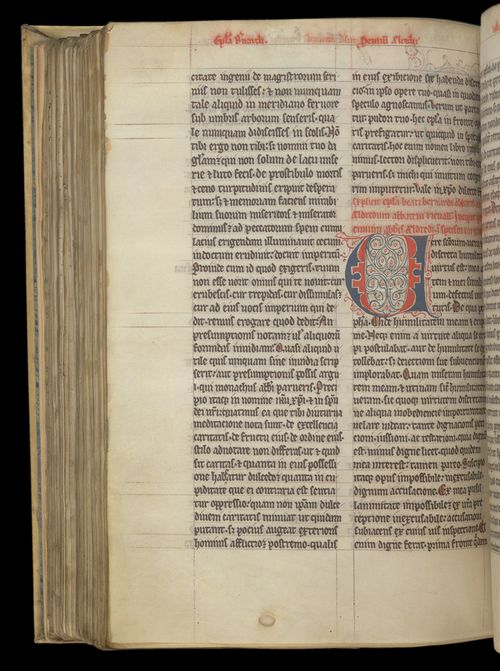 Epl'a B'nardi.
citate ingenii de magistrorum scri
niis non tulisses: & non numquam
tale aliquid in meridiano feruore
sub umbris arborum senseris. qua
le numquam didicisses in scolis. Nō
tibi ergo non tibi: s; nomini tuo da
gl'am: qui non solum de lacu mise
rie & luto fecis. de prostibulo mortis
& ceno turpitudinis eripuit despera
tum: s; & memoriam faciens mirabi
lium suorum misericors & miserator
dominus: ad peccatorum spem cumu
lacius erigendam illuminauit cecum
indoctum erudiuit: docuit imperitū.
Proinde cum id quod exigeris tuum
non esse norit omnis qui te nouit: cur
erubescis. cur trepidas. cur dissimulas?
cur ad eius uocis imperium qui de
dit. renuis erogare quod dedit? An
presumptionis notam: uel aliquorū
formidas inuidiam? Quasi aliquid u
tile quis umquam sine inuidia scrip
serit: aut presumptionis possis argu
i. qui monachus abb'i parueris. Preci
pio itaq; in nomine
dei nr̄i: quatinus ea que tibi diuturna
meditacione nota sunt. de excellencia
caritatis. de fructu eius. de ordine eius.
stilo adnotare non differas. ut & quid
sit caritas. & quanta in eius possessi
one habeatur dulcedo: quanta in cu
piditate que ei contraria est sentia
tur oppressio. quam non ip̄am dulce
dinem caritatis minuat ut quidam
putant. s; pocius augeat exterioris
hominis afflictio: postremo. qualis
in eius exibicione sit habenda discre
cio: in ipso opere tuo. quasi in quodam
speculo agnoscamus. Verum ut parca
tur pudori tuo. hec epl'a in fronte ope
ris prefigatur: ut quicquid in speculo
caritatis. hoc enim nomen libro impo
nimus. lectori displicuerit: non tibi q'
parueris. s; michi qui inuitum coege
rim imputetur. Vale in xp̄o dilecte fr̄.
Explicit epl'a beati bernardi abb'is ad
Aldredum abbatem rieuall'. Incipit
Uere scorum uera &
discreta humilitas
uirtus est: mea au
tem & mei similiū.
defectus uir
tutis. De qua p
pha. Uide humilitatem meam & eripe
me. Neq; enim a uirtute aliqua se eri
pi postulabat. aut de humilitate se ex
tollebat: s; deiectioni sue subuencionē
implorabat. Quam miseram humilita
tem meam: & utinam sic humilitatē
ueram. sic quoq; uirtutem discrecionis:
ne aliqua inobediencie importunitate
uelare uidear. tante dignacionis peti
cionem. iussioni. ac testationi. quia digna
est: minus digne licet. quod quidem
mea interest: tamen pareo. Suscipio
itaq; opus impossibile. inexcusabile.
dignum accusacione. Ex mea pusil
lanimitate impossibile. ex ur̄a pre
ceptione inexcusabile: accusacioni
subiacens ex cuius uis inspectione. Qs
enim digne ferat: prima fronte quem